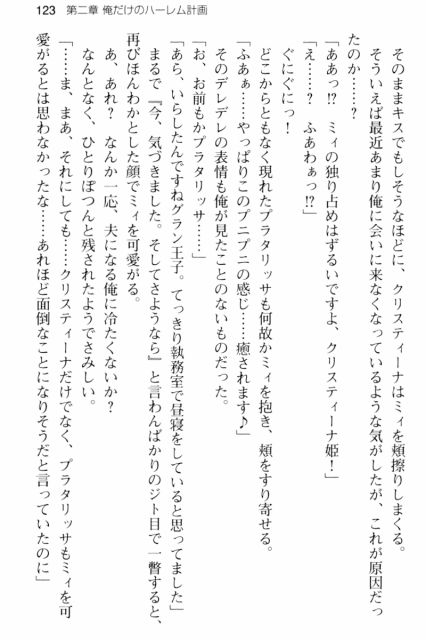 123 第二章 俺だけのハーレム計画
そのままキスでもしそうなほどに、クリスティーナはミィを頬擦りしまくる。
そういえば最近あまり俺に会いに来なくなっているような気がしたが、これが原因だっ
たのか……？
「ああっ!? ミィの独り占めはずるいですよ、クリスティーナ姫！」
「え……？ ふあわぁっ!?」
ぐにぐにっ！
どこからともなく現れたプラタリッサも何故かミィを抱き、頬をすり寄せる。
「ふあぁ……やっぱりこのプニプニの感じ……癒されます♪」
そのデレデレの表情も俺が見たことのないものだった。
「お、お前もかプラタリッサ……」
「あら、いらしたんですねグラン王子。てっきり執務室で昼寝をしていると思ってました」
まるで『今、気づきました。そしてさようなら』と言わんばかりのジト目で一瞥すると、
再びほんわかとした顔でミィを可愛がる。
あ、あれ？ なんか一応、夫になる俺に冷たくないか？
なんとなく、ひとりぽつんと残されたようでさみしい。
「……ま、まあ、それにしても……クリスティーナだけでなく、プラタリッサもミィを可
愛がるとは思わなかったな……あれほど面倒なことになりそうだと言っていたのに」